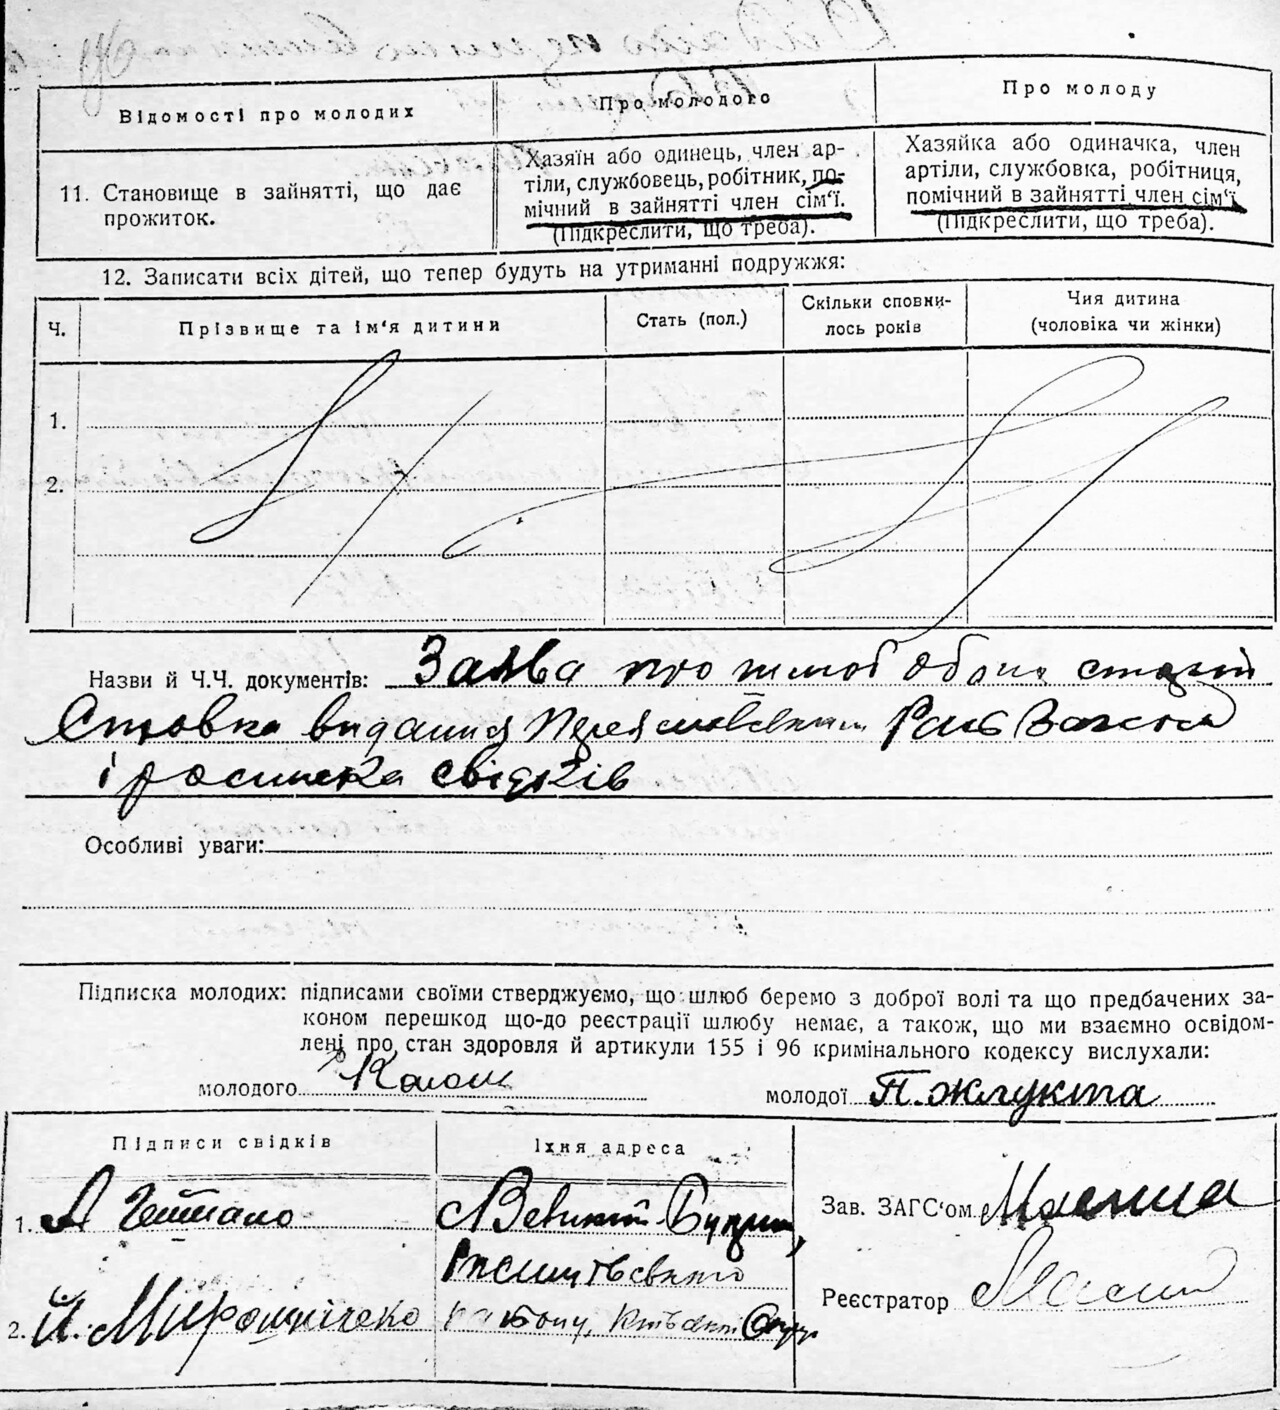 Відомості про молодих
Про молодого
Про молоду
11. Становище в зайнятті, що дає
прожиток.
Хазяїн або одинець, член ар-
тіли, службовець, робітник, по-
мічний в зайнятті член сім'ї.
(Підкреслити, що треба).
Хазяйка або одиначка, член
артіли, службовка, робітниця,
помічний в зайнятті член сім'ї
(Підкреслити, що треба).
12. Записати всіх дітей, що тепер будуть на утриманні подружжя:
Ч.
Прізвище та ім'я дитини
Стать (пол.)
Скільки сповни-
лось років
Чия дитина
(чоловіка чи жінки)
1.
2.
Назви й Ч.Ч. документів: Заява про шлюб
Справка видания
і росписка свідків
Особливі уваги:
Підписка молодих: підписами своїми стверджуємо, що шлюб беремо з доброї волі та що предбачених за-
коном перешкод що-до реєстрації шлюбу немає, а також, що ми взаємно освідом-
лені про стан здоровля й артикули 155 і 96 кримінального кодексу вислухали:
молодого
молодої П. Жлукта
Підписи свідків
Їхня адреса
1. А
2. Й. Мирошніченко
Зав. ЗАГС'ом
Реєстратор